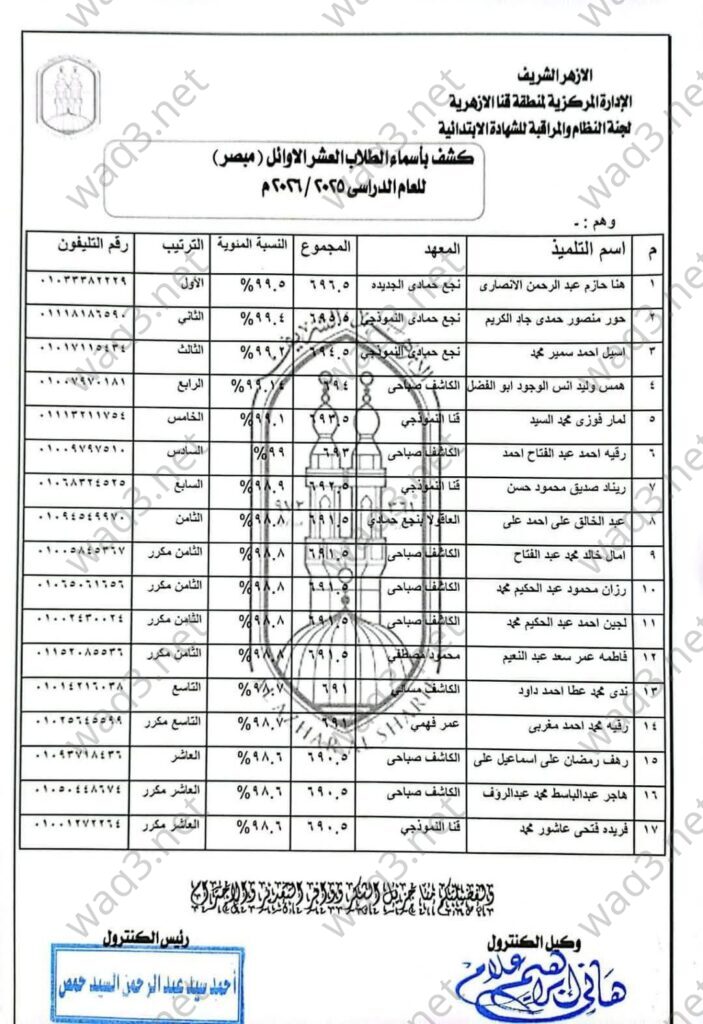 الازهر الشريف
الإدارة المركزية لمنطقة قنا الازهرية
لجنة النظام والمراقبة للشهادة الابتدائية
كشف بأسماء الطلاب العشر الاوائل (مبصر)
للعام الدراسى ٢٠٢٥ / ٢٠٢٦ م
وهم :-
م اسم التلميذ المعهد المجموع النسبة المئوية الترتيب رقم التليفون
١ هنا حازم عبد الرحمن الانصارى نجع حمادى الجديده ٦٩٦.٥ ٩٩.٥% الأول ٠١٠٣٣٣٨٢٢٢٩
٢ حور منصور حمدى جاد الكريم نجع حمادى النموذجي ٦٩٥.٥ ٩٩.٤% الثاني ٠١١١٨١٨٦٥٩٠
٣ اسيل احمد سمير محمد نجع حمادى النموذجي ٦٩٤.٥ ٩٩.٢% الثالث ٠١٠١٧١١٥٤٣٤
٤ همس وليد انس الوجود ابو الفضل الكاشف صباحى ٦٩٤ ٩٩.١٤% الرابع ٠١٠٠٧٩٧٠١٨١
٥ لمار فوزى محمد السيد قنا النموذجي ٦٩٣.٥ ٩٩.١% الخامس ٠١١١٣٢١١٧٥٤
٦ رقيه احمد عبد الفتاح احمد الكاشف صباحى ٦٩٣ ٩٩% السادس ٠١٠٠٩٧٩٧٥١٠
٧ ريناد صديق محمود حسن قنا النموذجي ٦٩٢.٥ ٩٨.٩% السابع ٠١٠٦٨٣٢٤٥٢٥
٨ عبد الخالق على احمد على العاقولا بنجع حمادي ٦٩١.٥ ٩٨.٨% الثامن ٠١٠٩٤٥٤٩٩٧٠
٩ امال خالد محمد عبد الفتاح الكاشف صباحى ٦٩١.٥ ٩٨.٨% الثامن مكرر ٠١٠٠٥٨٤٥٣٦٧
١٠ رزان محمود عبد الحكيم محمد الكاشف صباحى ٦٩١.٥ ٩٨.٨% الثامن مكرر ٠١٠٦٥٠٦١٦٥٦
١١ لجين احمد عبد الحكيم محمد الكاشف صباحى ٦٩١.٥ ٩٨.٨% الثامن مكرر ٠١٠٠٢٤٣٠٠٢٤
١٢ فاطمه عمر سعد عبد النعيم محمود مصطفي ٦٩١.٥ ٩٨.٨% الثامن مكرر ٠١١٥٢٠٨٥٥٣٦
١٣ ندى محمد عطا احمد داود الكاشف مسائي ٦٩١ ٩٨.٧% التاسع ٠١٠١٤٢١٦٠٣٨
١٤ رقيه محمد احمد مغربى عمر فهمي ٦٩١ ٩٨.٧% التاسع مكرر ٠١٠٢٥٦٤٥٥٩٩
١٥ رهف رمضان على اسماعيل على الكاشف صباحى ٦٩٠.٥ ٩٨.٦% العاشر ٠١٠٩٣٧١٨٤٣٦
١٦ هاجر عبدالباسط محمد عبدالرؤف الكاشف صباحى ٦٩٠.٥ ٩٨.٦% العاشر مكرر ٠١٠٥٠٤٤٨٦٧٤
١٧ فريده فتحى عاشور محمد قنا النموذجي ٦٩٠.٥ ٩٨.٦% العاشر مكرر ٠١٠٠١٢٧٢٢٦٤
ولفضيلتكم منا جزيل الشكر ووافر التقدير والاحترام
وكيل الكنترول رئيس الكنترول
هاني إبراهيم علام أحمد سيد عبد الرحمن السيد حمص
waq3.net